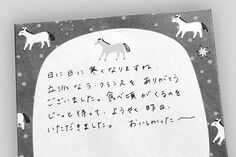 日に日に寒くなりますね。
立派なラ・フランスをありがとう
ございました。食べ頃がくるのを
じーっと待って、ようやく昨日、
いただきました。おいしかったー